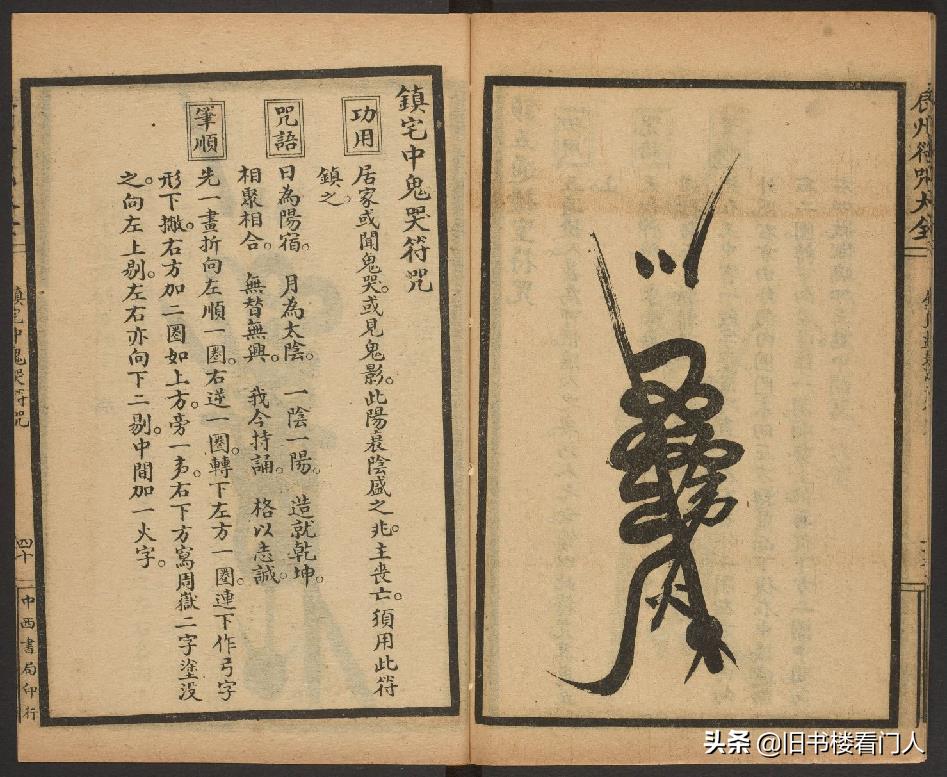 鎮宅中鬼哭符咒
功用
居家或聞鬼哭。或見鬼影。此陽衰陰盛之兆。主喪亡。須用此符
鎮之。
咒語
日為陽宿。月為太陰。一陰一陽。造就乾坤。
相聚相合。無替無興。我今持誦。格以志誠。
筆順
先一畫折向左順一圈。右逆一圈。轉下左方一圈。連下作弓字
形下撇。右方加二圈如上方。旁一夯。右下方寫周嶽二字塗没
之。向左上剔。左右亦向下二剔。中間加一火字。
鎮宅中鬼哭符咒
四十
中西書局印行
符咒大全
头条 @旧书楼看门人